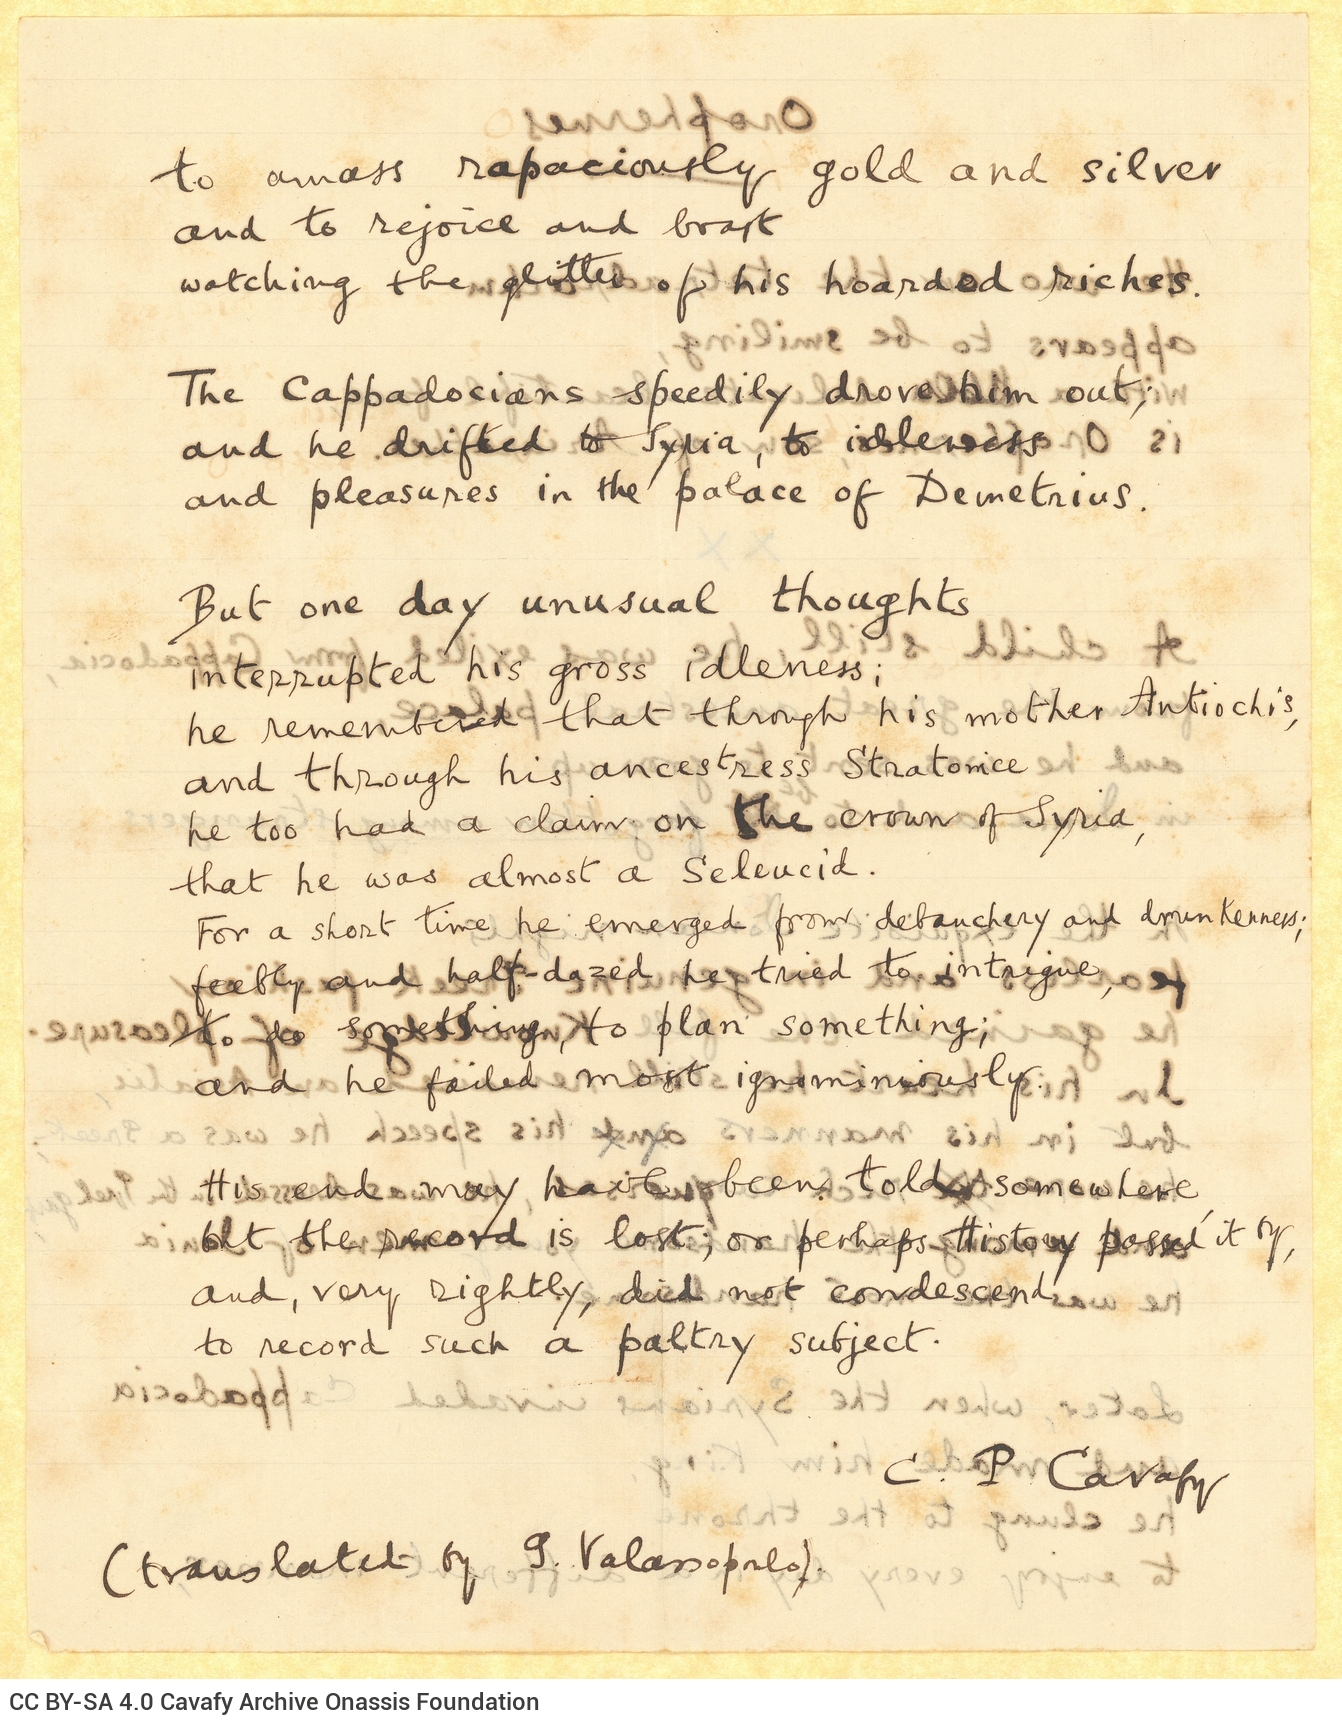 to amass rapaciously gold and silver
and to rejoice and boast
watching the glitter of his hoarded riches.
The Cappadocians speedily drove him out;
and he drifted to Syria, to idleness
and pleasures in the palace of Demetrius.
But one day unusual thoughts
interrupted his gross idleness;
he remembered that through his mother Antiochis,
and through his ancestress Stratonice
he too had a claim on the crown of Syria,
that he was almost a Seleucid.
For a short time he emerged from debauchery and drunkenness;
feebly and half-dazed he tried to intrigue,
to do something, to plan something;
and he failed most ignominiously.
His end may have been told somewhere,
but the record is lost; or perhaps History passed it by,
and, very rightly, did not condescend
to record such a paltry subject.
C. P. Cavafy
(translated by G. Valassopoulo).
CC BY-SA 4.0 Cavafy Archive Onassis Foundation